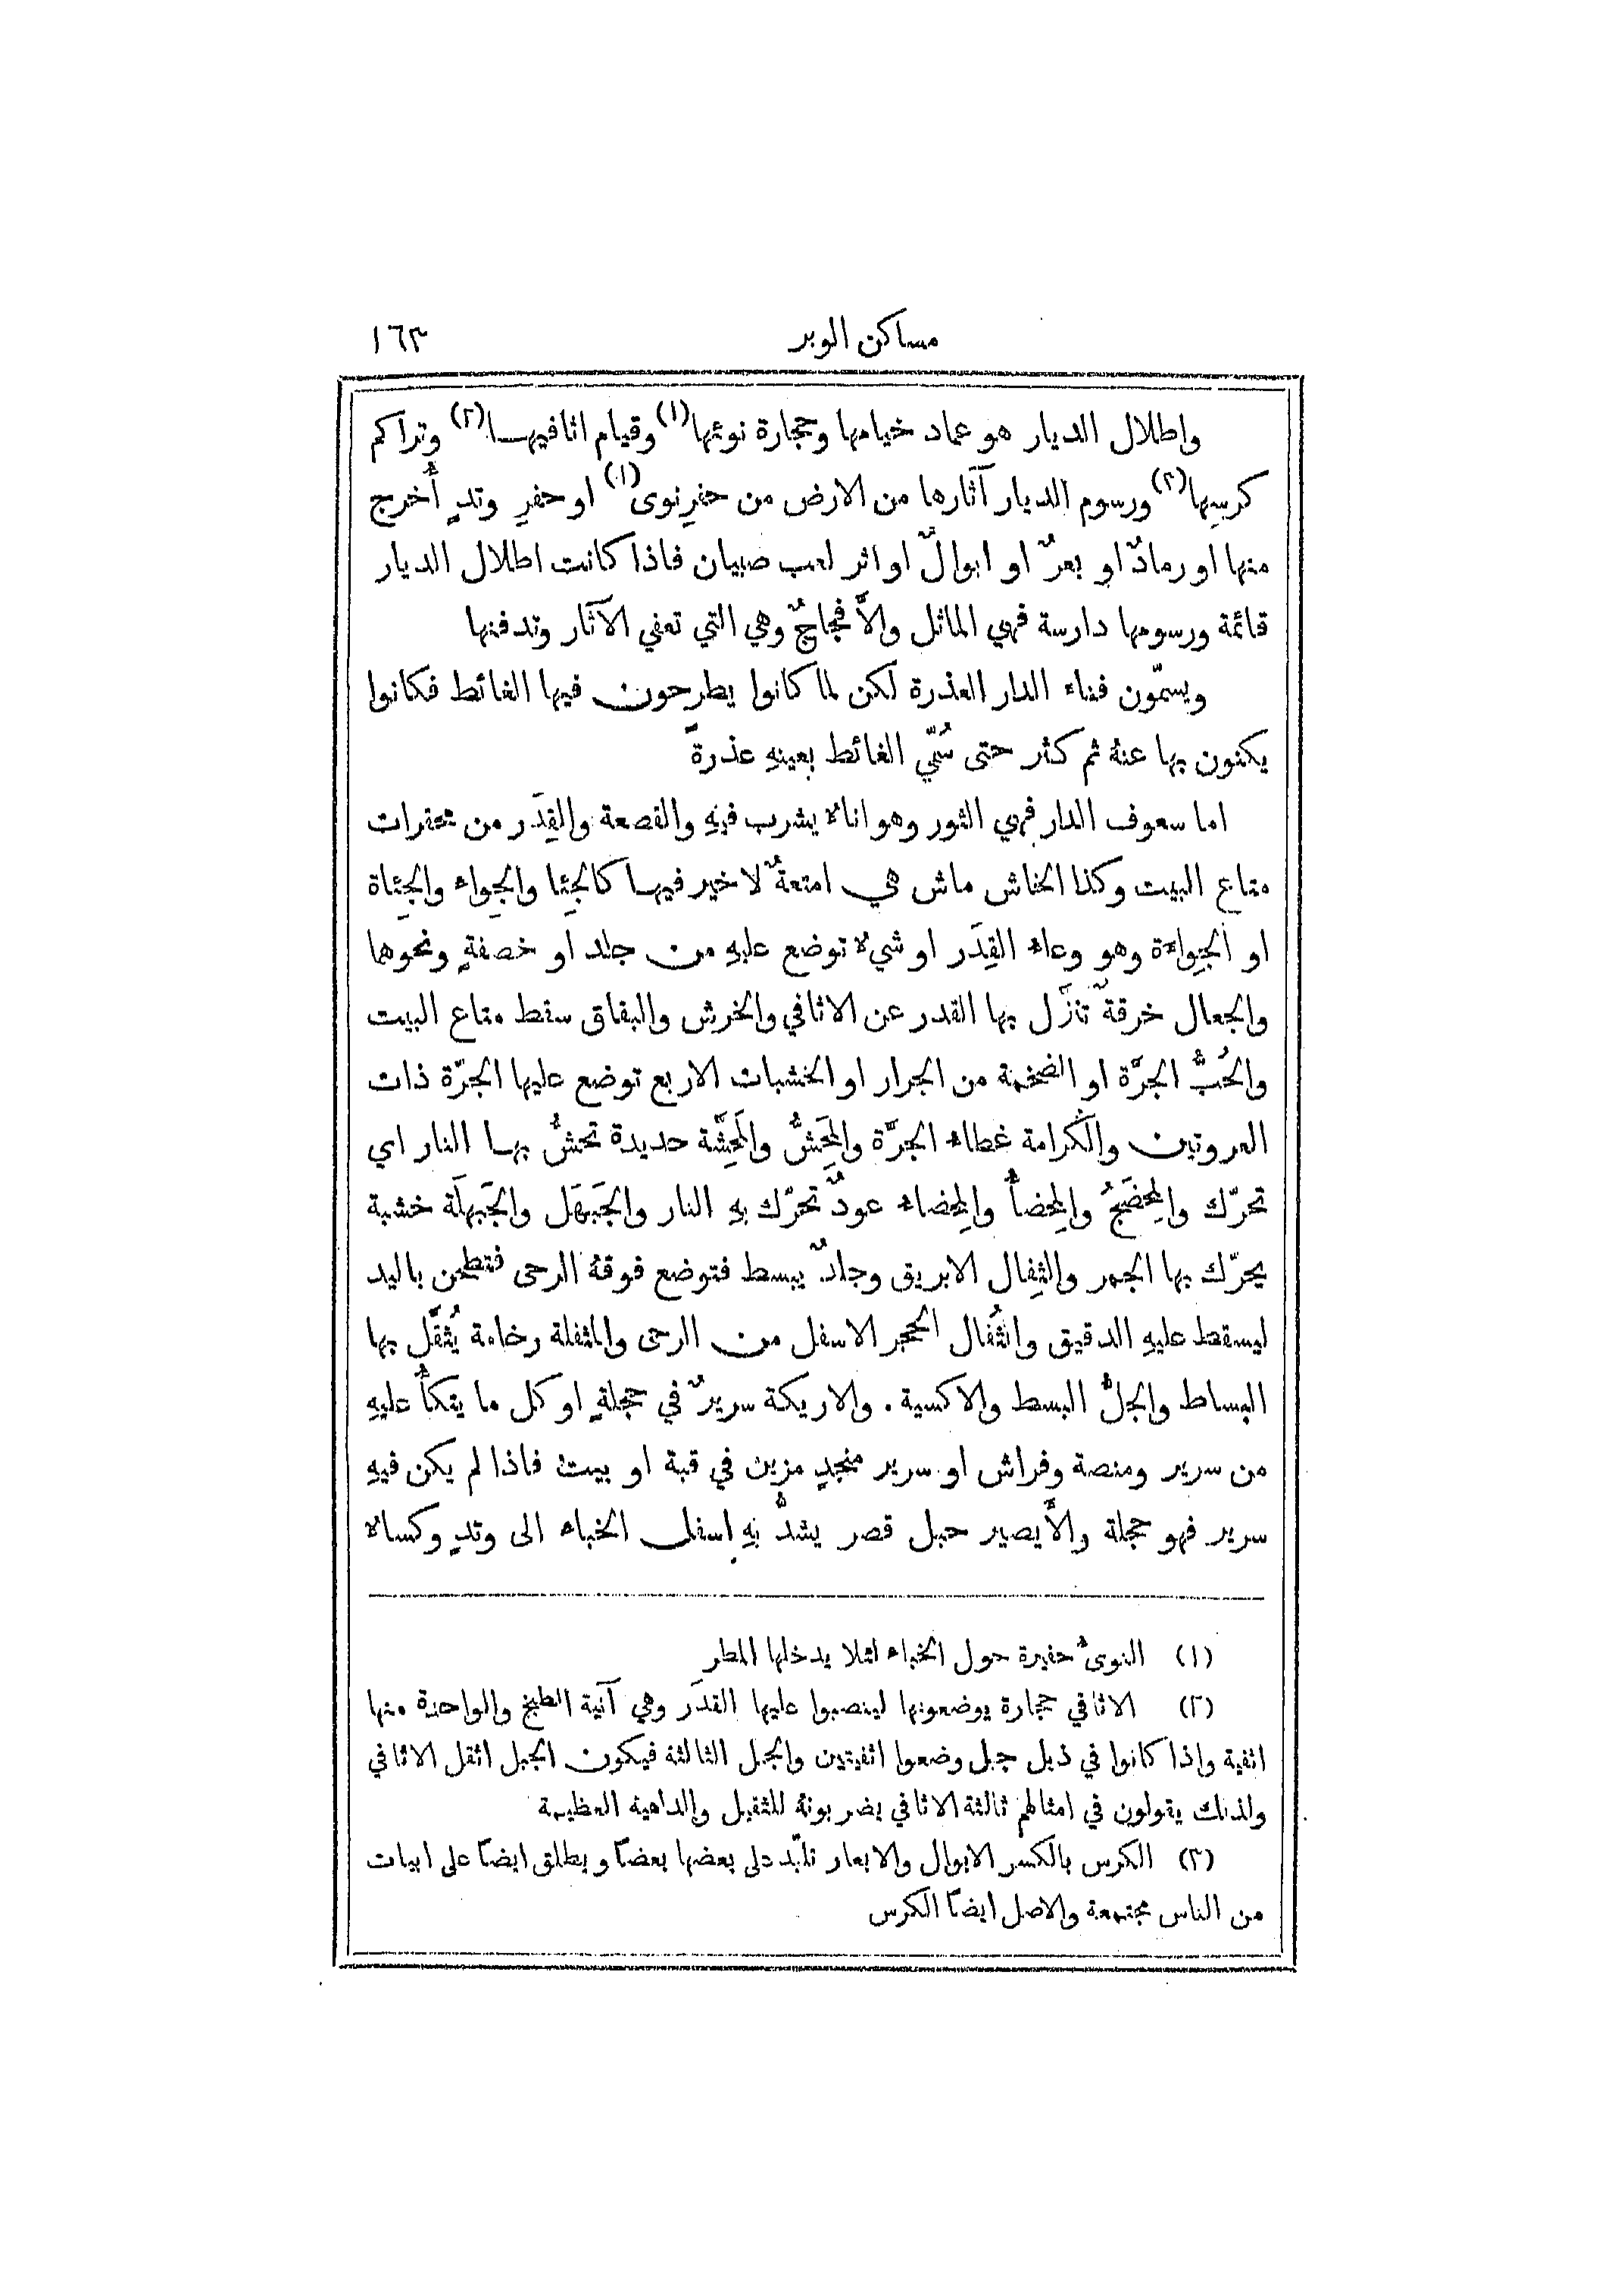 مساكن الوبر ١٦٣
واطلال الديار هو عماد خيامها وحجارة نوئها(١) وقيام اثافيها(٢) وتراكم
كرسِها(٣) ورسوم الديار آثارها من الارض من حفرِ نوى(١) او حفرِ وتدٍ أُخرج
منها او رمادٌ او بعرٌ او ابوالٌ او اثر لعب صبيان فاذا كانت اطلال الديار
قائمة ورسومها دارسة فهي الماثل والاَّ فجاجٌ وهي التي تعفي الآثار وتدفنها
ويسمّون فناء الدار العذرة لكن لما كانوا يطرحون فيها الغائط فكانوا
يكنون بها عنهُ ثم كثر حتى سُمّي الغائط بعينهِ عذرةً
اما سعوف الدار فهي الثور وهو اناءٌ يشرب فيهِ والقصعة والقِدَر من محقرات
متاع البيت وكذا الخاش ماش هي امتعةٌ لا خير فيها كالجِئا والجِواء والجِئاة
او الجِواءة وهو وعاء القِدَر او شيءٌ توضع عليهِ من جلد او خصفةٍ ونحوها
والجعال خرقةٌ تنزَّل بها القدر عن الاثافي والخرش والبقاق سقط متاع البيت
والحُبُّ الجرَّة او الضخمة من الجرار او الخشبات الاربع توضع عليها الجرّة ذات
العروتين والكرامة غطاء الجرَّة والمِحَشُّ والمِحَشَّة حديدة تحشُّ بها النار اي
تحرّك والمِحضَجُ والمِحضأُ والمِحضاء عودٌ تحرّك بهِ النار والجَيهَل والجَيهلَة خشبة
يحرّك بها الجمر والثِفال الابريق وجلدٌ يبسط فتوضع فوقهُ الرحى فتطحن باليد
ليسقط عليهِ الدقيق والثُفال الحجر الاسفل من الرحى والمثقلة رخامة يُثقَّل بها
البساط والجلُّ البسط والاكسية. والاريكة سريرٌ في حجلةٍ او كل ما يتكأُ عليهِ
من سرير ومنصة وفراش او سرير منجدٍ مزين في قبة او بيت فاذا لم يكن فيهِ
سرير فهو حجلة والأيصير حبل قصر يشدُّ بهِ اسفل الخباء الى وتدٍ وكساءٌ
(١) النوىُّ حفيرة حول الخباء لئلا يدخلها المطر
(٢) الاثافي حجارة يوضعونها لينصبوا عليها القدَر وهي آنية الطبخ والواحدة منها
اثفية واذا كانوا في ذيل جبل وضعوا اثفيتين والجبل الثالثة فيكون الجبل اثقل الاثافي
ولذلك يقولون في امثالهم ثالثة الاثافي يضربونهُ للثقيل والداهية العظيمة
(٣) الكرس بالكسر الابوال والابعار تلبّد على بعضها بعضاً ويطلق ايضاً على ابيات
من الناس مجتمعة والاصل ايضاً الكرس